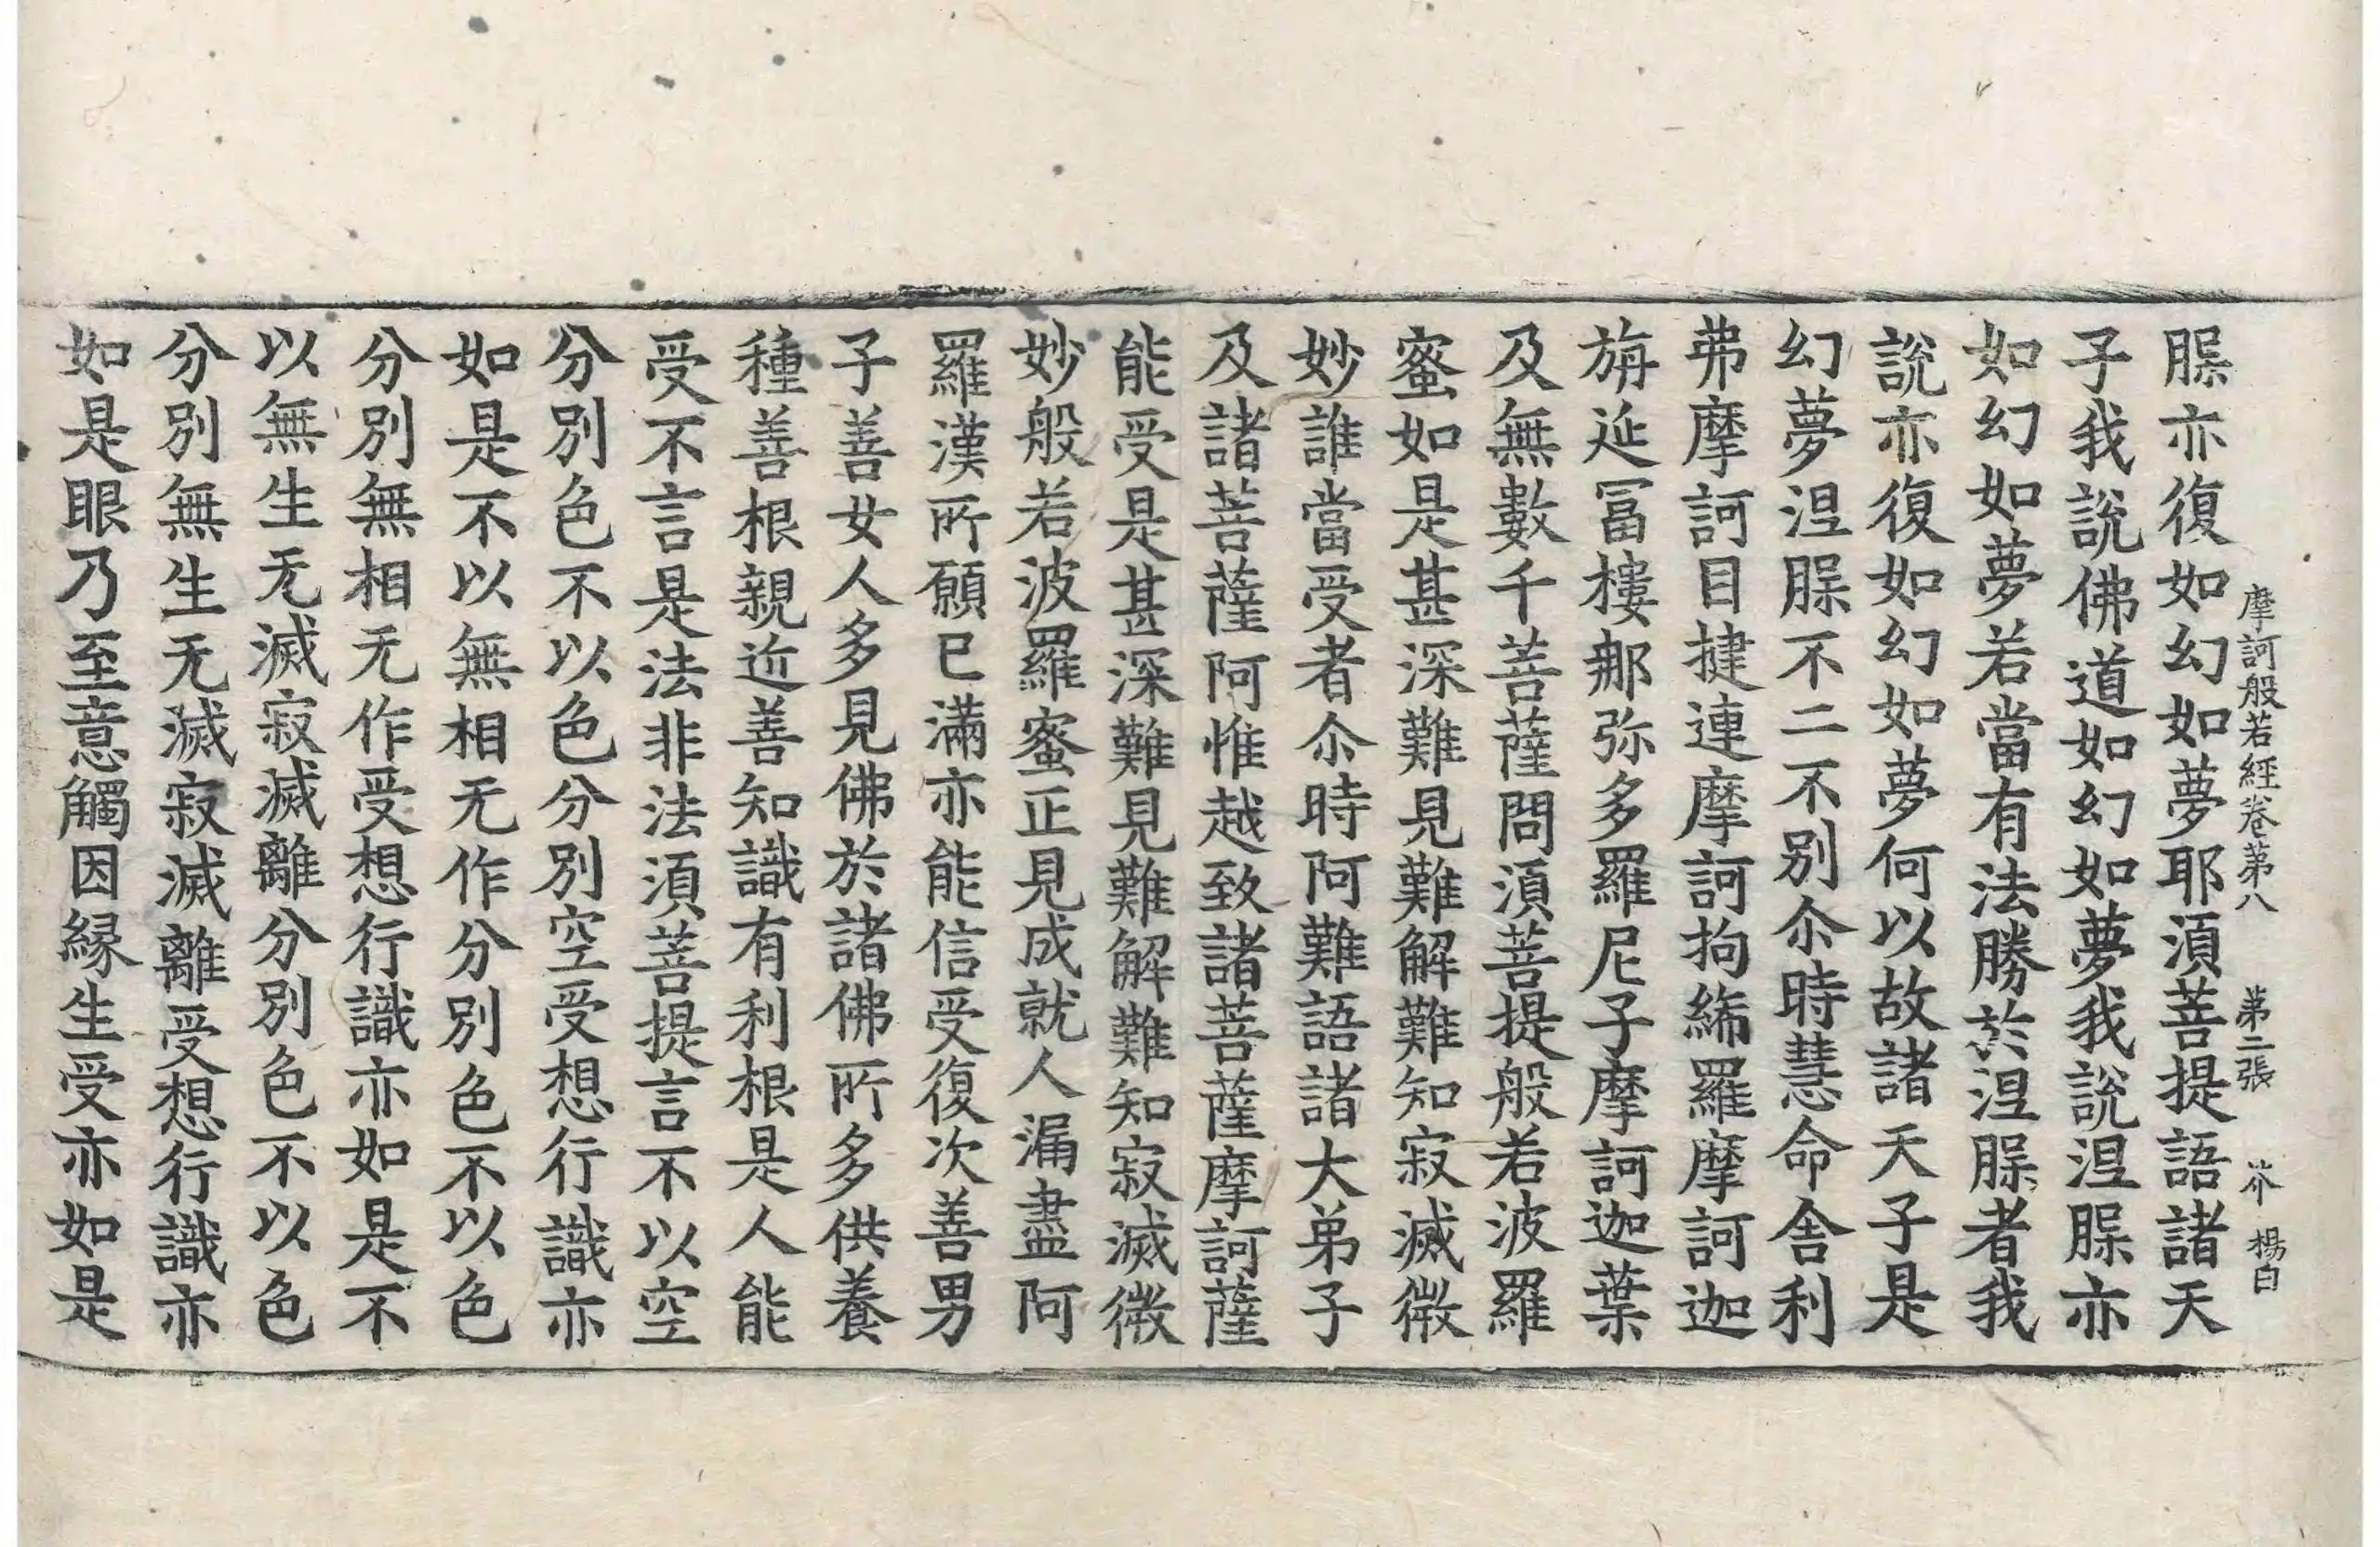 摩訶般若經卷第八 第二張 芥 楊白
𦝫亦復如幻如夢耶湏菩提語諸天
子我說佛道如幻如夢我說涅𦝫亦
如幻如夢若當有法勝於涅𦝫者我
說亦復如幻如夢何以故諸天子是
幻夢涅𦝫不二不別尒時慧命舍利
弗摩訶目揵連摩訶拘絺羅摩訶迦
旃延冨樓那弥多羅尼子摩訶迦葉
及無數千菩薩問湏菩提般若波羅
蜜如是甚深難見難解難知寂滅微
妙誰當受者尒時阿難語諸大弟子
及諸菩薩阿惟越致諸菩薩摩訶薩
能受是甚深難見難解難知寂滅微
妙般若波羅蜜正見成就人漏盡阿
羅漢所願已滿亦能信受復次善男
子善女人多見佛於諸佛所多供養
種善根親近善知識有利根是人能
受不言是法非法湏菩提言不以空
分別色不以色分別空受想行識亦
如是不以無相无作分別色不以色
分別無相无作受想行識亦如是不
以無生无滅寂滅離分別色不以色
分別無生无滅寂滅離受想行識亦
如是眼乃至意觸因緣生受亦如是